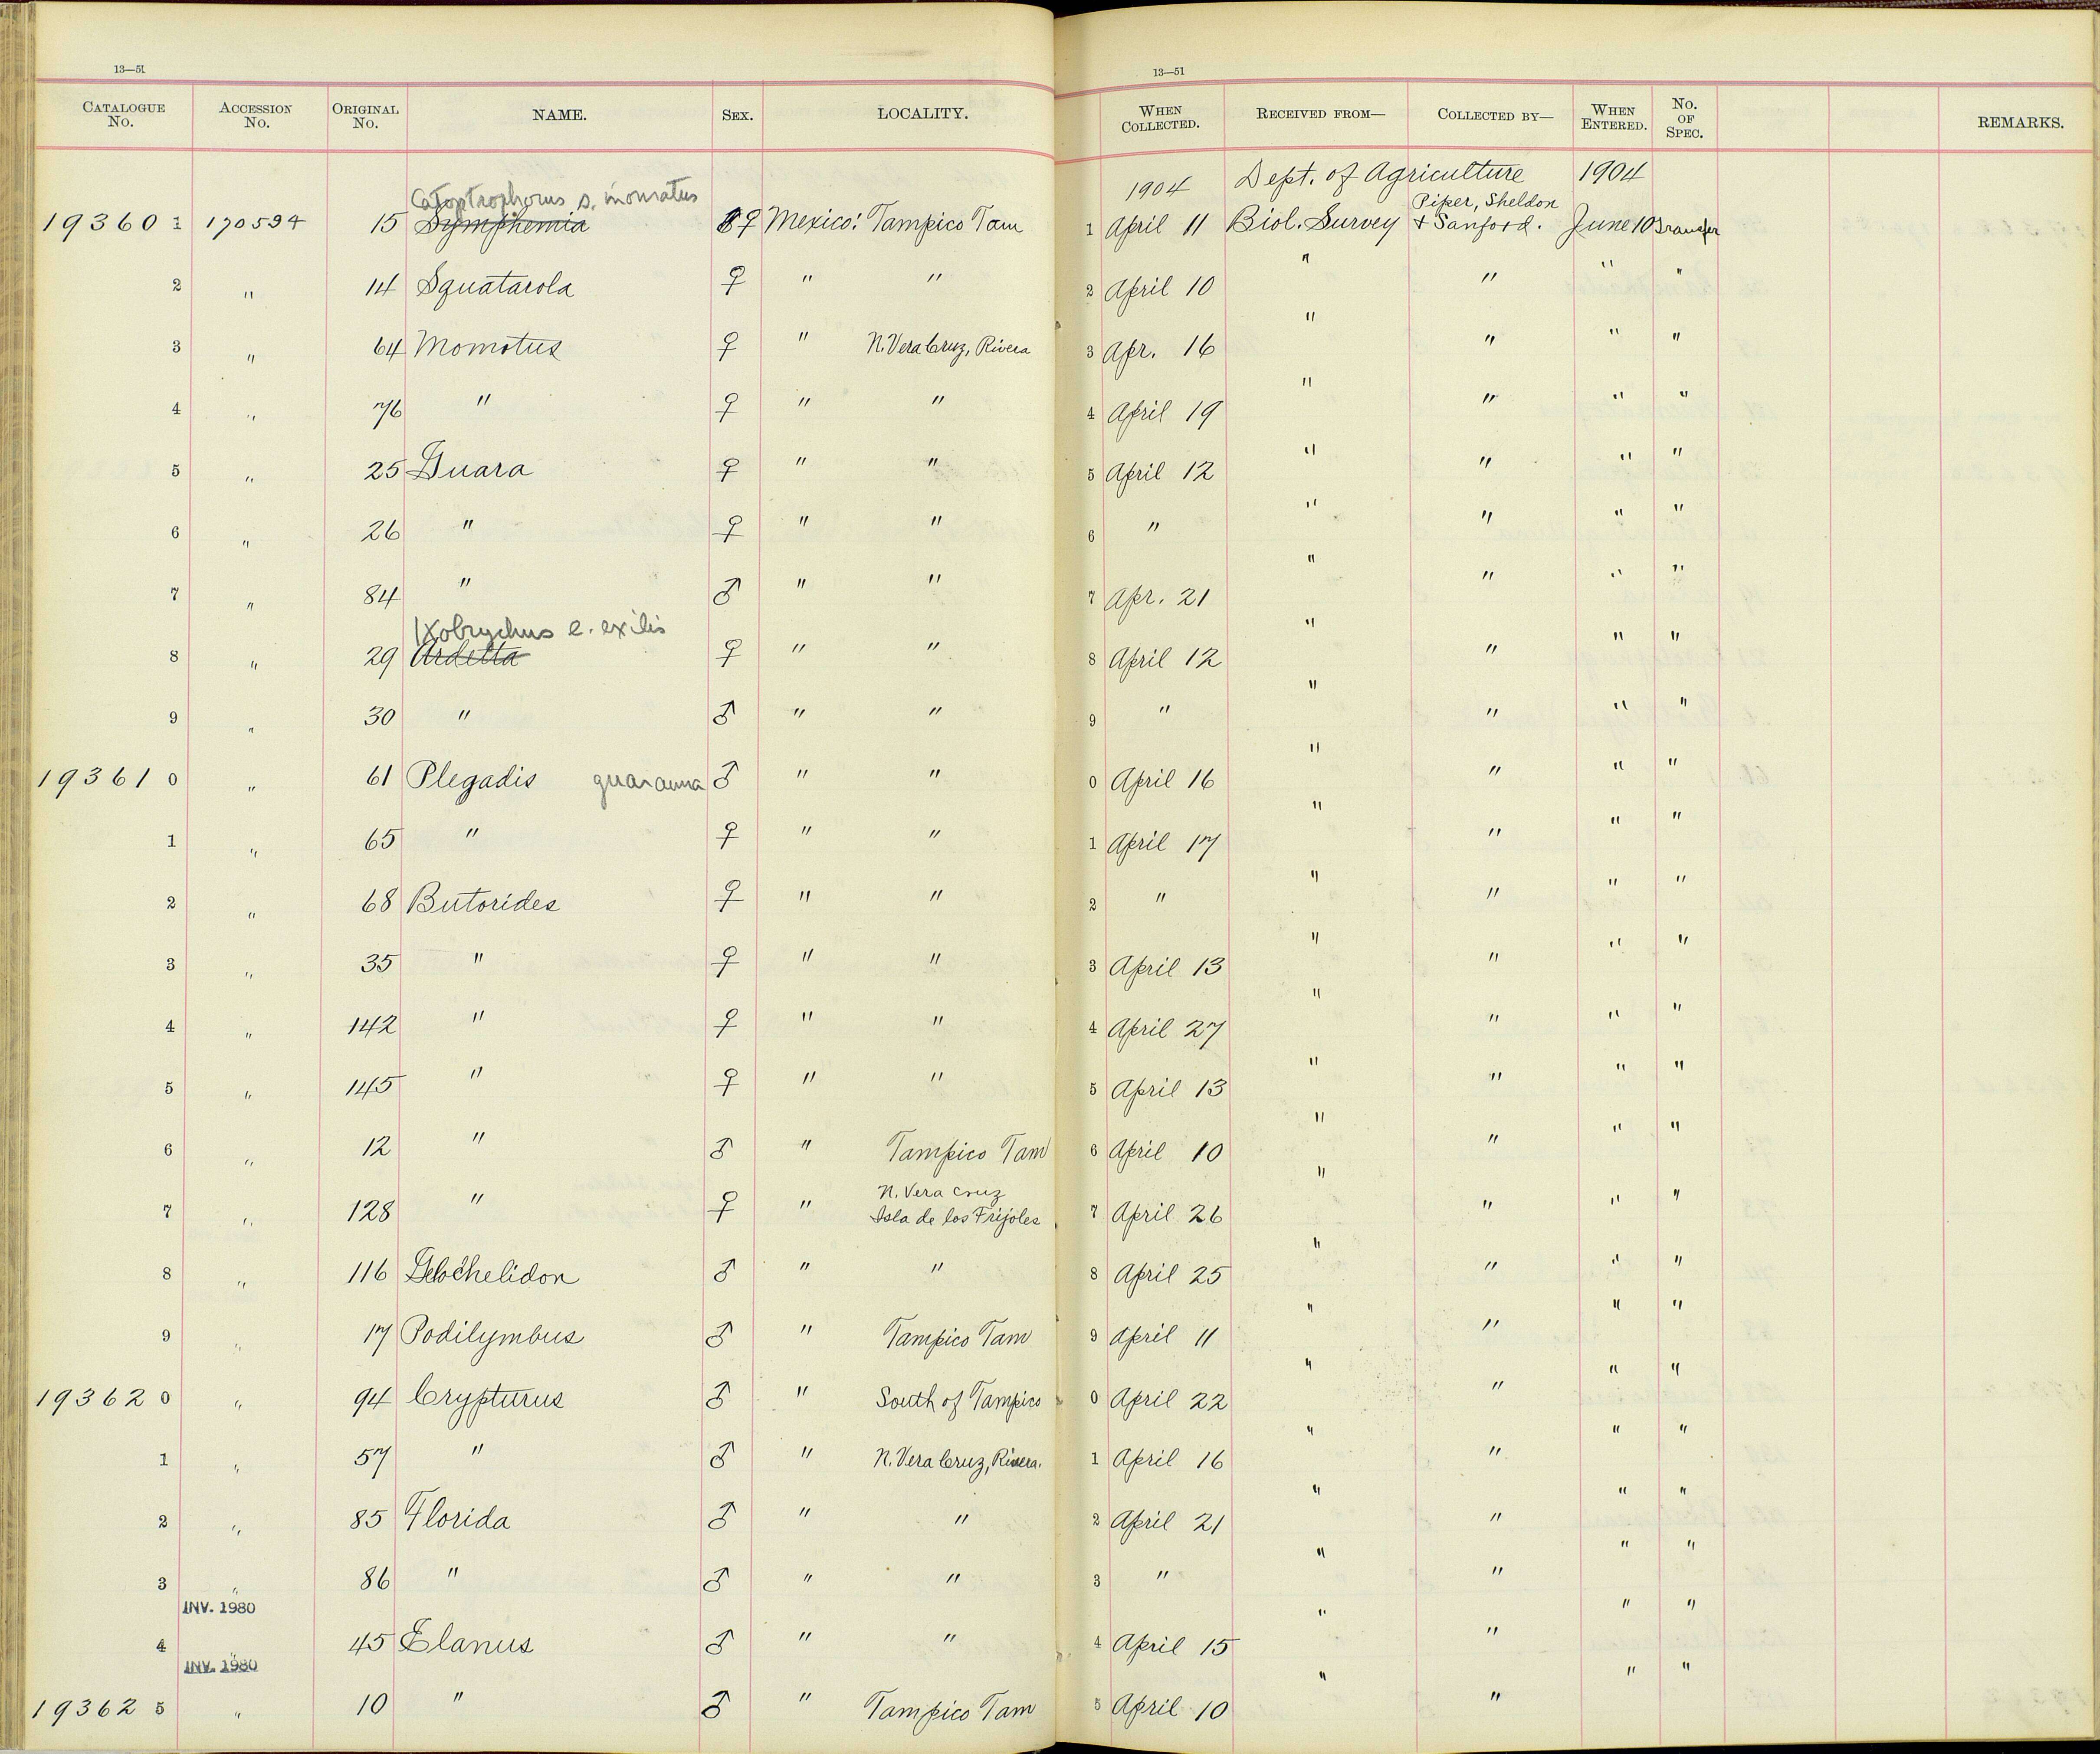 13—51
13—51
CATALOGUE No. ACCESSION No. ORIGINAL No. NAME. SEX. LOCALITY. WHEN COLLECTED. RECEIVED FROM— COLLECTED BY— WHEN ENTERED. No. OF SPEC. REMARKS.
1904 Dept. of Agriculture 1904
Catoptrophorus s. inornatus Piper, Sheldon
19360 1 170594 15 Symphemia ♀ Mexico: Tampico Tam 1 April 11 Biol. Survey & Sanford. June 10 Transfer
2 " 14 Squatarola ♀ " " 2 April 10 " " " "
3 " 64 Momotus ♀ " N. Vera Cruz, Rivera 3 Apr. 16 " " " "
4 " 76 " ♀ " " 4 April 19 " " " "
5 " 25 Guara ♀ " " 5 April 12 " " " "
6 " 26 " ♀ " " 6 " " " " "
7 " 84 " ♂ " " 7 Apr. 21 " " " "
Ixobrychus e. exilis
8 " 29 Ardetta ♀ " " 8 April 12 " " " "
9 " 30 " ♂ " " 9 " " " " "
19361 0 " 61 Plegadis guarauna ♂ " " 0 April 16 " " " "
1 " 65 " ♀ " " 1 April 17 " " " "
2 " 68 Butorides ♀ " " 2 " " " " "
3 " 35 " ♀ " " 3 April 13 " " " "
4 " 142 " ♀ " " 4 April 27 " " " "
5 " 145 " ♀ " " 5 April 13 " " " "
6 " 12 " ♂ " Tampico Tam 6 April 10 " " " "
N. Vera Cruz
7 " 128 " ♀ " Isla de los Frijoles 7 April 26 " " " "
8 " 116 Gelochelidon ♂ " " 8 April 25 " " " "
9 " 17 Podilymbus ♂ " Tampico Tam 9 April 11 " " " "
19362 0 " 94 Crypturus ♂ " South of Tampico 0 April 22 " " " "
1 " 57 " ♂ " N. Vera Cruz, Rivera. 1 April 16 " " " "
2 " 85 Florida ♂ " " 2 April 21 " " " "
3 " 86 " ♂ " " 3 " " " " "
INV. 1980
4 " 45 Elanus ♂ " " 4 April 15 " " " "
INV. 1980
19362 5 " 10 " ♂ " Tampico Tam 5 April 10 " " " "